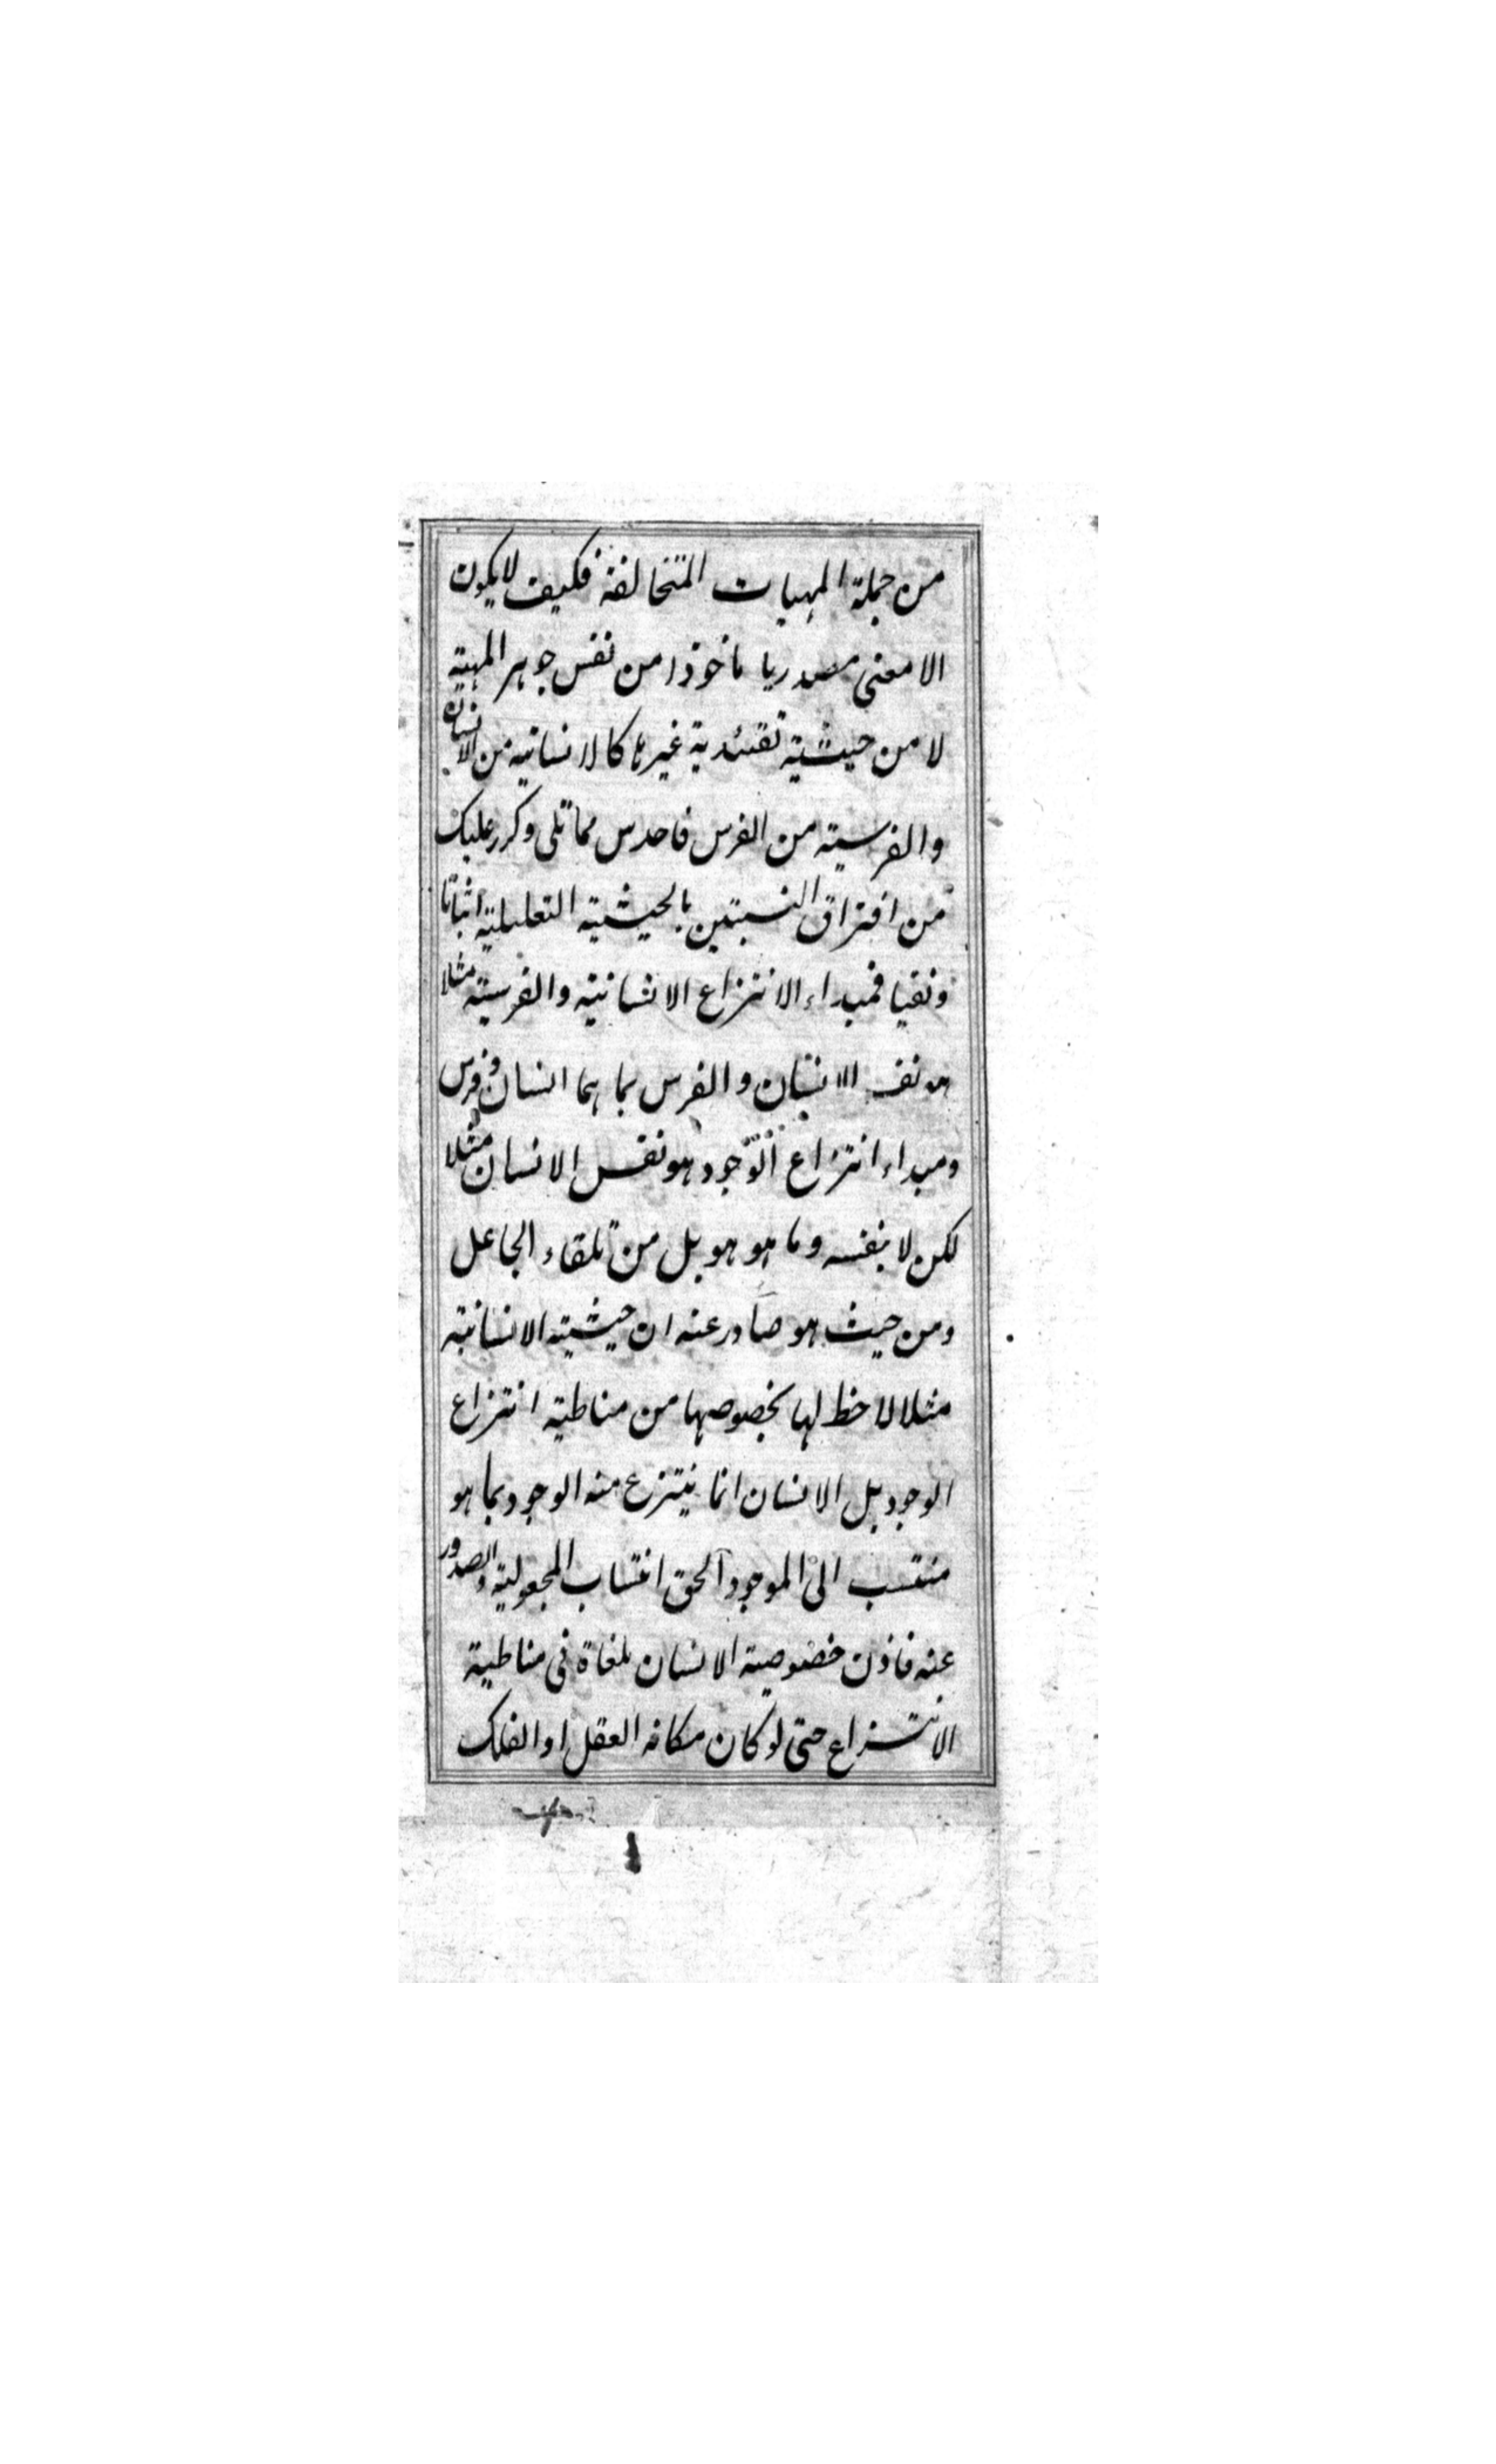 من جملة المهيات المتخالفة فكيف لا يكون
الا معنى مصدريا ماخوذا من نفس جوهر المهية
لا من حيثية تقييدية غيرها كالانسانية من الانسان
والفرسية من الفرس فاحدس مما تلى وكرر عليك
من افتراق النسبتين بالحيثية التعليلية اثباتا
ونفيا فمبداء الانتزاع الانسانية والفرسية مثلا
هو نفس الانسان والفرس بما هما انسان وفرس
ومبداء انتزاع الوجود هو نفس الانسان مثلا
لكن لا بنفسه وما هو هو بل من تلقاء الجاعل
ومن حيث هو صادر عنه ان حيثية الانسانية
مثلا لاحظ لها بخصوصها من مناطية انتزاع
الوجود بل الانسان انما ينتزع منه الوجود بما هو
منتسب الى الموجود الحق انتساب المجعولية والصدور
عنه فاذن خصوصية الانسان ملغاة فى مناطية
الانتزاع حتى لو كان مكانه العقل او الفلك